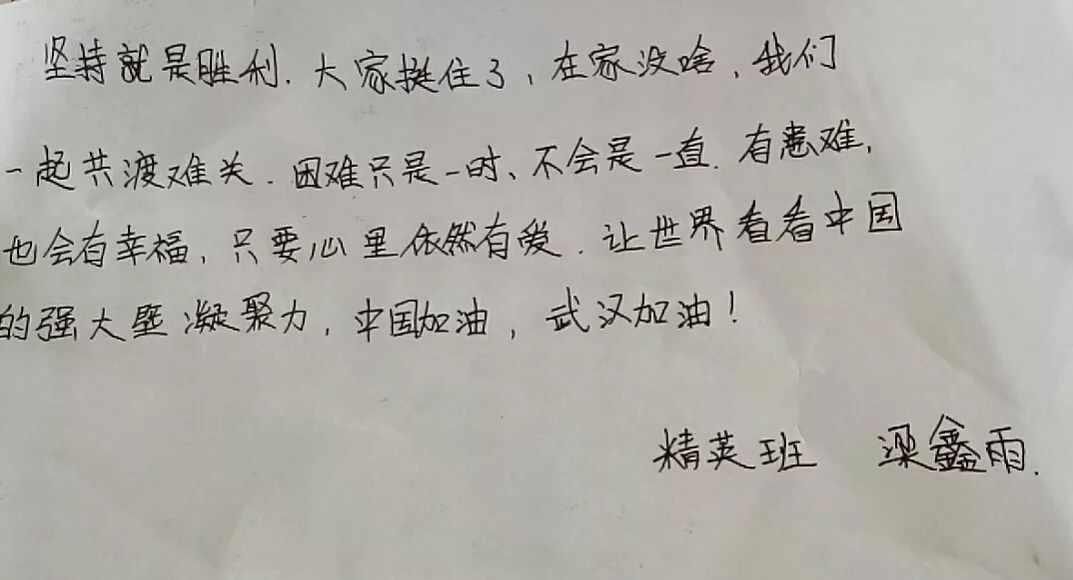 坚持就是胜利.大家挺住了,在家没啥,我们
一起共渡难关.困难只是一时、不会是一直.有患难,
也会有幸福,只要心里依然有爱.让世界看看中国
的强大 凝聚力,中国加油,武汉加油!
精英班 梁鑫雨.